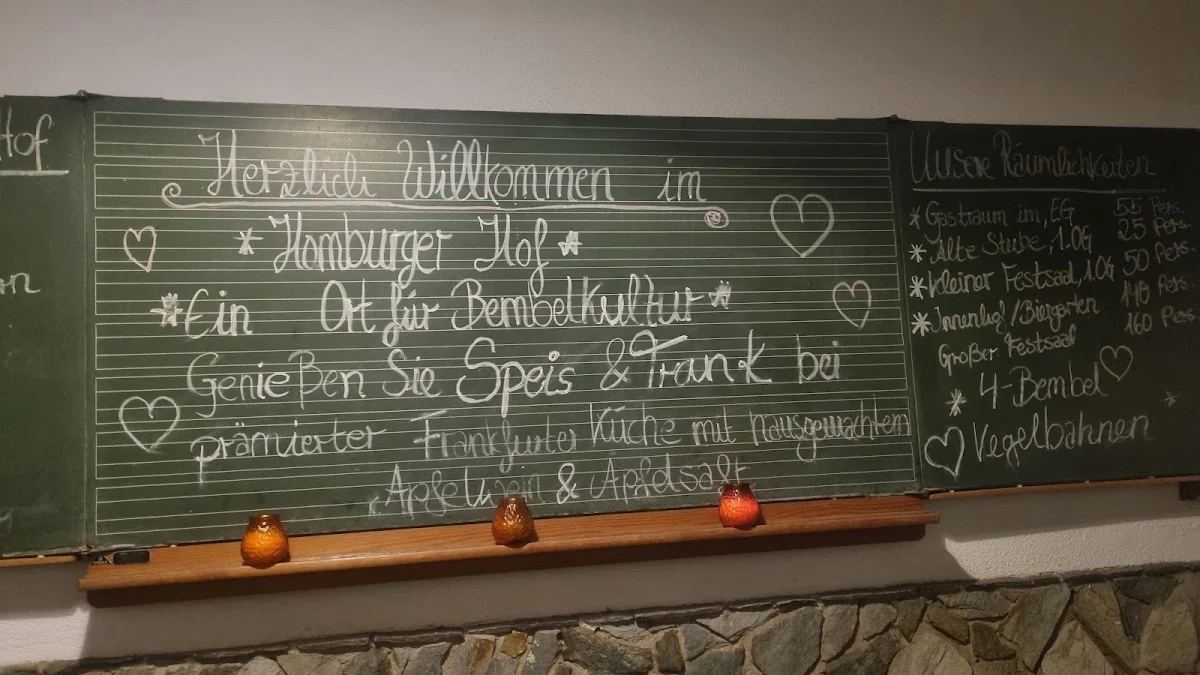 Hof
Herzlich Willkommen im
* Homburger Hof *
* Ein Ort für Bembelkultur *
Genießen Sie Speis & Trank bei
prämierter Frankfurter Küche mit hausgemachtem
Apfelwein & Apfelsaft
Unsere Räumlichkeiten
* Gastraum im, EG 55 Pers.
* Alte Stube, 1.OG 25 Pers.
* kleiner Festsaal, 1.OG 50 Pers.
* Innenhof/Biergarten 140 Pers.
Großer Festsaal 160 Pers.
* 4-Bembel
Kegelbahnen